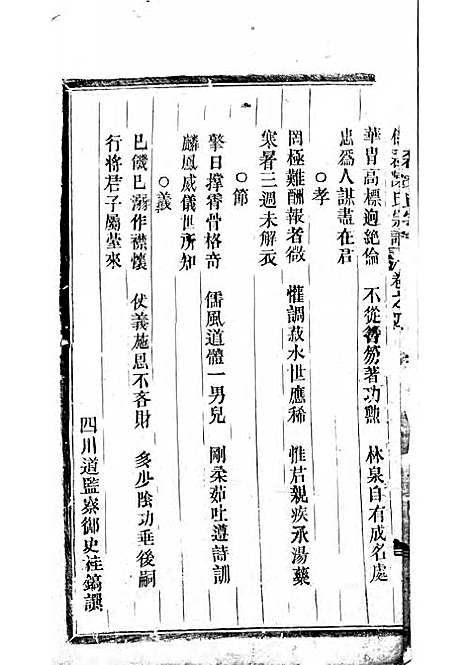 華胄高標逈絶倫　不從簪笏著功勲　林泉自有成名處
忠爲人謀盡在君
○孝
罔極難酬報者微　懽調菽水世應稀　惟君親疾承湯藥
寒暑三週未解衣
○節
擎日撐霄骨格奇　儒風道體一男兒　剛柔茹吐遵詩訓
麟鳳威儀世所知
○義
巳饑巳溺作襟懷　仗義施恩不吝財　多少陰功垂後嗣
行將君子屬塋來
四川道監察御史桂鎬譔